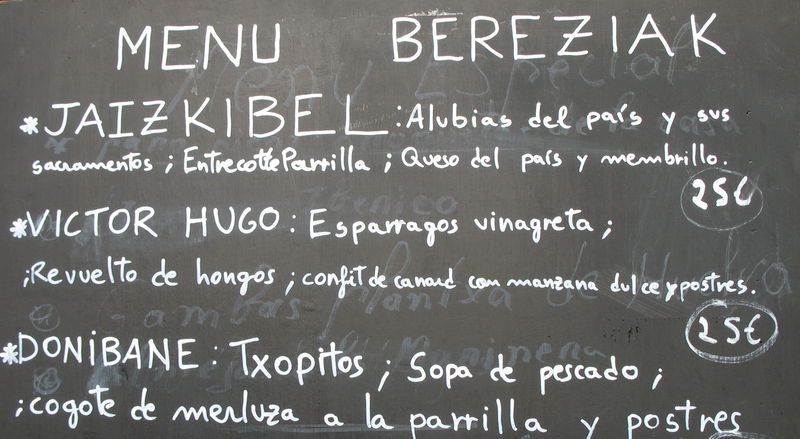 MENU BEREZIAK
*JAIZKIBEL: Alubias del país y sus
sacramentos; Entrecotte Parrilla; Queso del país y membrillo.
25€
*VICTOR HUGO: Esparragos vinagreta;
;Revuelto de hongos; confit de canard con manzana dulce y postres.
25€
*DONiBANE: Txopitos; Sopa de pescado;
;cogote de merluza a la parrilla y postres